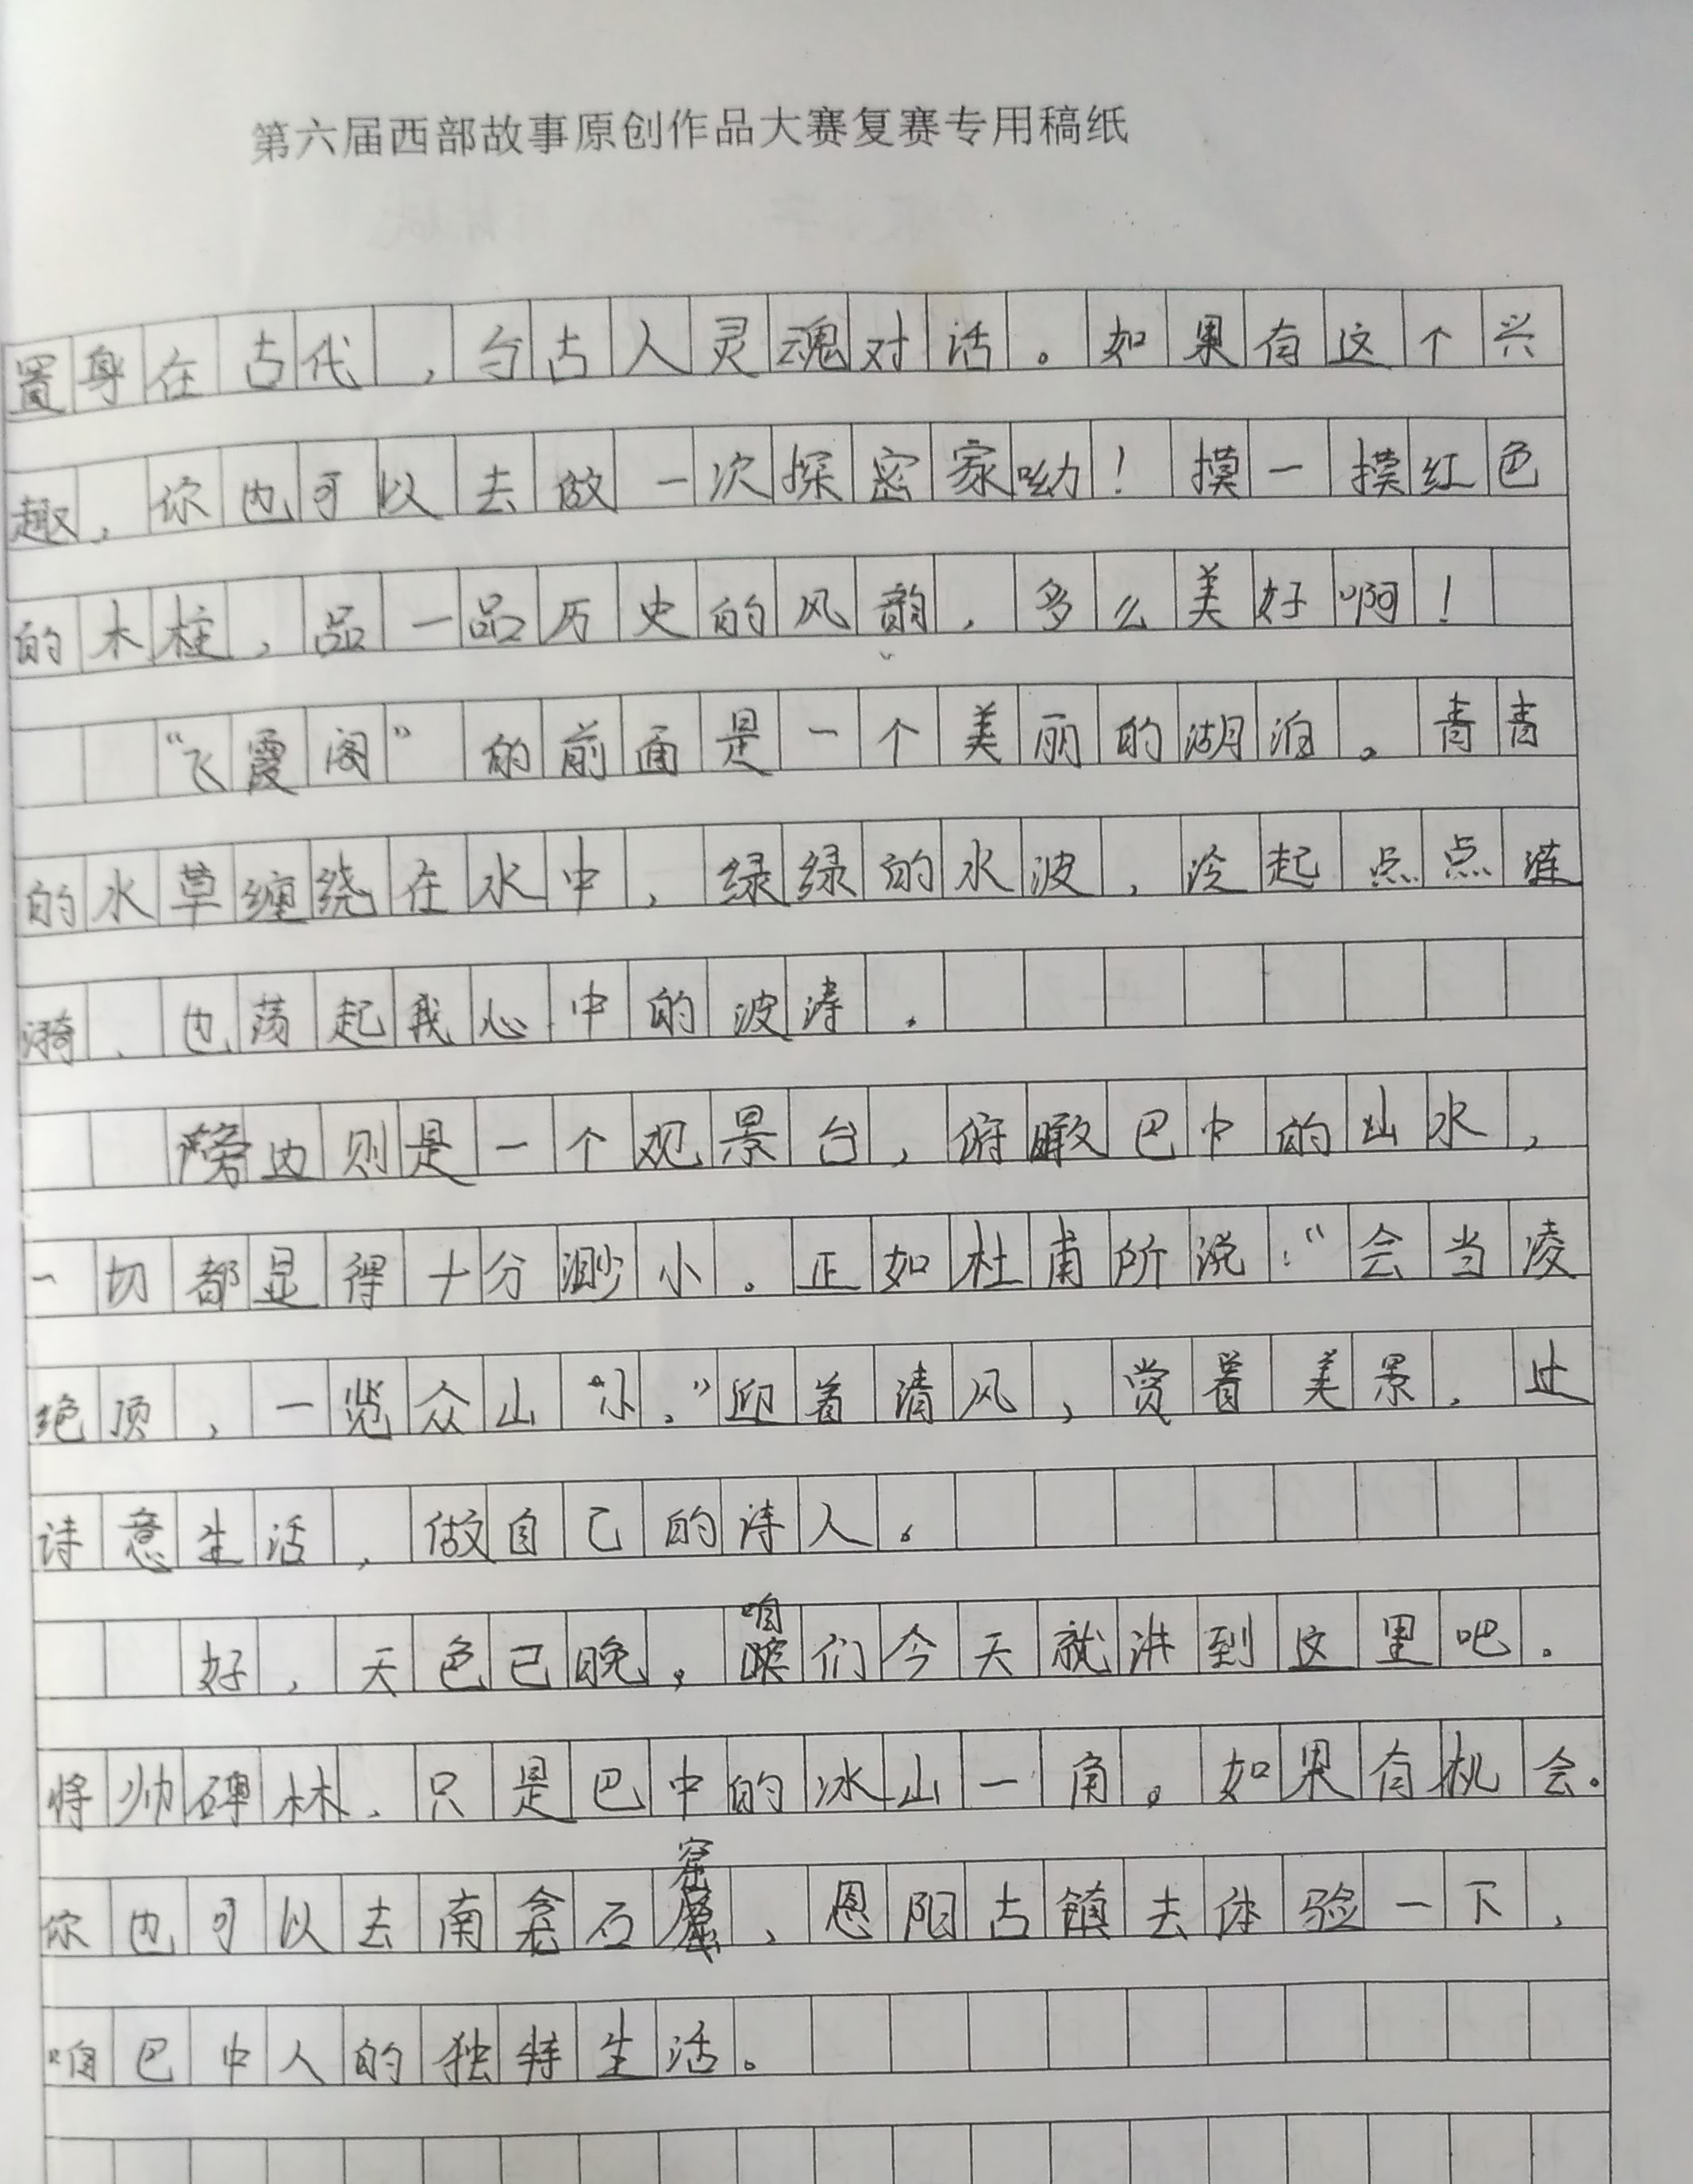 第六届西部故事原创作品大赛复赛专用稿纸
置身在古代，与古人灵魂对话。如果有这个兴
趣，你也可以去做一次探密家呦！摸一摸红色
的木柱，品一品历史的风韵，多么美好啊！
“飞霞阁”的前面是一个美丽的湖泊。青青
的水草缠绕在水中，绿绿的水波，泛起点点涟
漪、也荡起我心中的波涛。
旁边则是一个观景台，俯瞰巴中的山水，
一切都显得十分渺小。正如杜甫所说：“会当凌
绝顶，一览众山“小。”迎着清风，赏着美景，让
诗意生活，做自己的诗人。
好，天色已晚，咱们今天就讲到这里吧。
将帅碑林、只是巴中的冰山一角。如果有机会。
你也可以去南龛石窟、恩阳古镇去体验一下，
咱巴中人的独特生活。